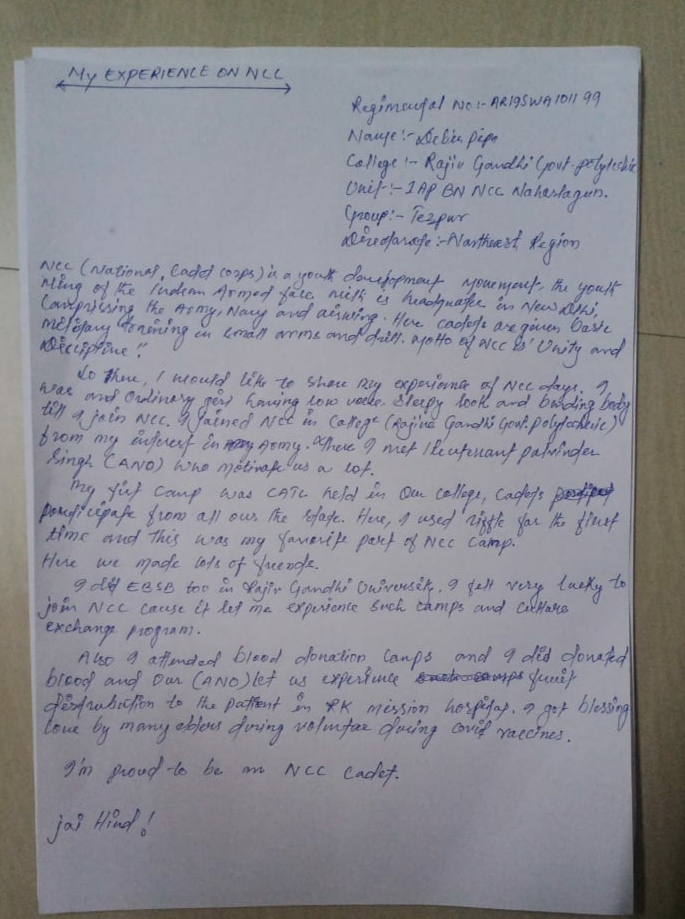 My EXPERIENCE ON NCC
Regimental No:- AR19SWA101199
Name:- Debia Pipa
College:- Rajiv Gandhi Govt. polytechnic
Unit:- 1 AP BN NCC Naharlagun.
Group:- Tezpur
Directorate:- Northeast Region
NCC (National Cadet corps) is a youth development movement, the youth
wing of the Indian Armed force with is headquater in New Delhi,
Comprissing the Army, Navy and airwing. Here cadets are given basic
military tranning in small arms and drill. Motto of NCC is "Unity and
Discipline".
So there, I would like to share my experience of NCC days. I
was and Ordinary girl having low voice, sleepy look and bending body
till I join NCC. I joined NCC in College (Rajiv Gandhi Govt. polytechnic)
from my interest in Army. There I met lieutenant palvinder
Singh (ANO) who motivate us a lot.
My first Camp was CATC held in Our college, Cadets
participate from all our the state. Here, I used riffle for the first
time and this was my favorite part of NCC Camp.
Here we made lots of friends.
I did EBSB too in Rajiv Gandhi University. I felt very lucky to
join NCC cause it let me experience such camps and culture
exchange program.
Also I attended blood donation camps and I did donated
blood and Our (ANO) let us experience fruit
distrubation to the patient in RK mission hospital. I got blessing
love by many elders during voluntee during covid vaccines.
I'm proud to be an NCC Cadet.
jai Hind!